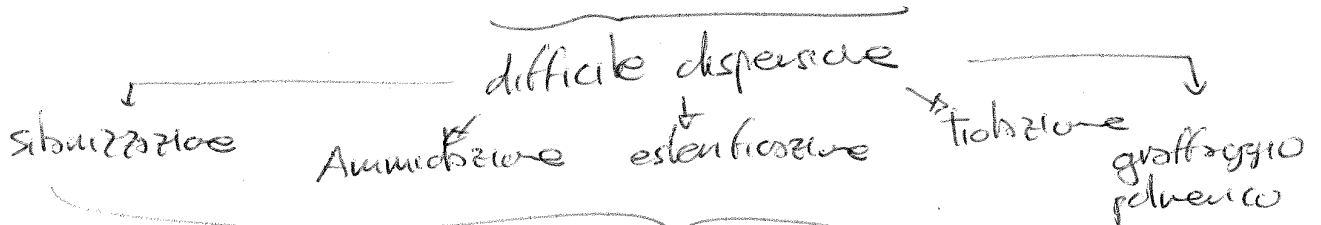 difficile dispersione
silanizzazione Ammidazione esterificazione tiolazione
graffaggio
polimerico